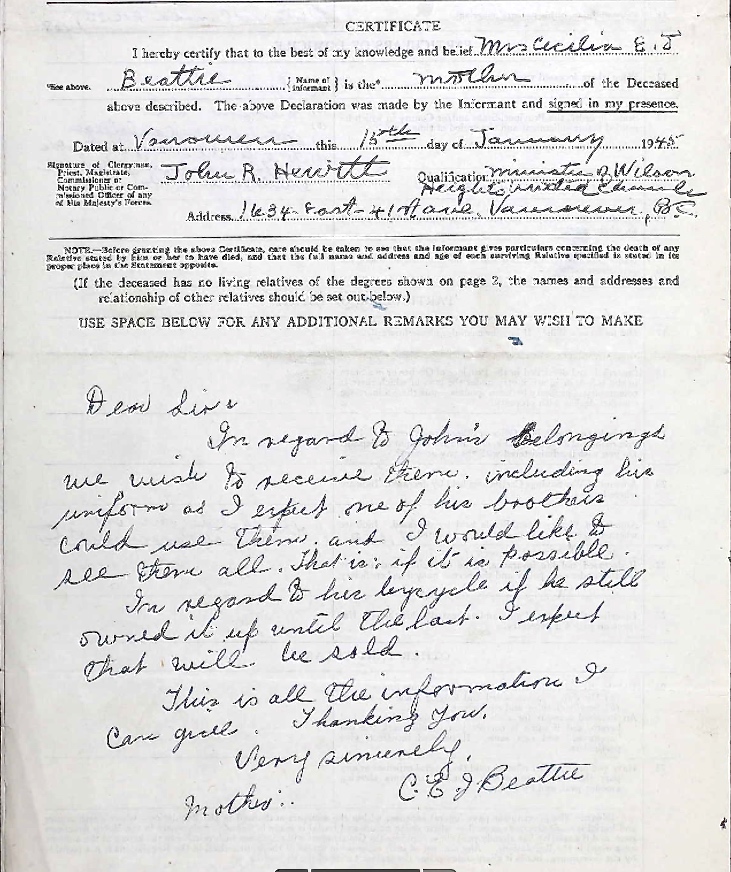 CERTIFICATE
I hereby certify that to the best of my knowledge and belief Mrs Cecilia E. J
*See above. Beattie {Name of Informant} is the* mother of the Deceased
above described. The above Declaration was made by the Informant and signed in my presence.
Dated at Vancouver this 15th day of January 1945
Signature of Clergyman, Priest, Magistrate, Commissioner or Notary Public or Commissioned Officer of any of His Majesty's Forces. John R. Hewitt Qualification Minister of Wilson
Heights United Church
Address 1634 East - 41st Ave, Vancouver, B.C.
NOTE.—Before granting the above Certificate, care should be taken to see that the informant gives particulars concerning the death of any
Relative stated by him or her to have died, and that the full name and address and age of each surviving Relative specified is stated in its
proper place in the Statement opposite.
(If the deceased has no living relatives of the degrees shown on page 2, the names and addresses and
relationship of other relatives should be set out below.)
USE SPACE BELOW FOR ANY ADDITIONAL REMARKS YOU MAY WISH TO MAKE
Dear Sirs
In regard to John's belongings
we wish to receive them. including his
uniform as I expect one of his brothers
could use them. and I would like to
see them all. That is; if it is possible.
In regard to his bycycle if he still
owned it up until the last. I expect
that will be sold.
This is all the information I
can give. Thanking you.
Very sincerely,
Mother.. C. E. J Beattie